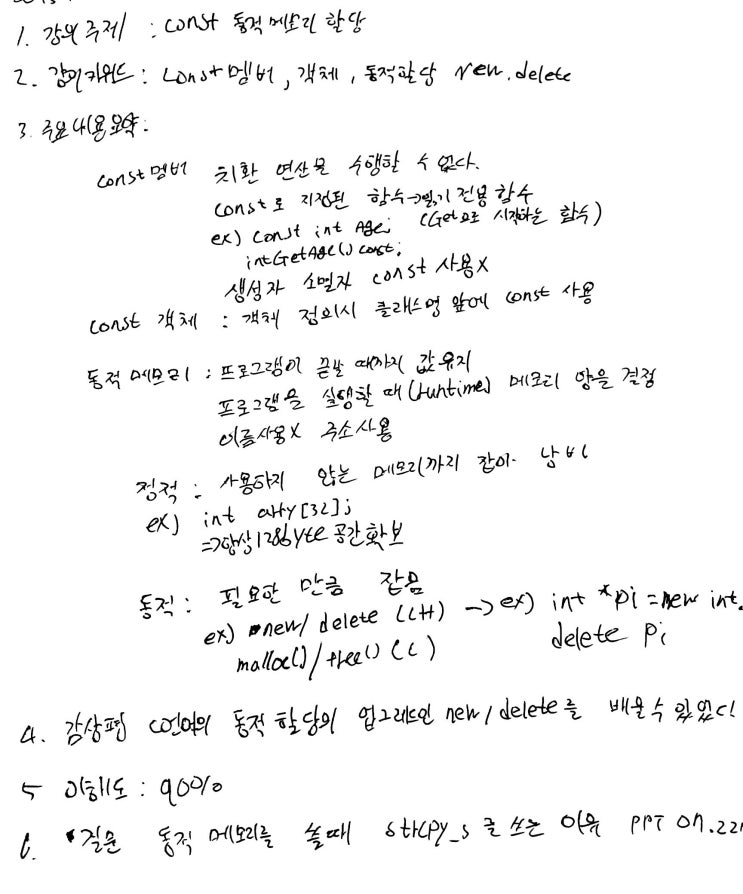 1. 강의 주제 : const 동적 메모리 할당
2. 강의 키워드 : const 멤버, 객체, 동적할당 new.delete
3. 주요내용요약:
const 멤버 치환 연산을 수행할 수 없다.
const로 지정된 함수→읽기 전용 함수
ex) const int Age; (Get으로 시작하는 함수)
int GetAge() const;
생성자 소멸자 const 사용X
const 객체 : 객체 정의시 클래스명 앞에 const 사용
동적 메모리 : 프로그램이 끝날 때까지 값유지
프로그램을 실행할 때(runtime) 메모리 양을 결정
이름사용X 주소사용
정적 : 사용하지 않는 메모리까지 잡아 낭비
ex) int arry[32];
=>항상128byte 공간확보
동적 : 필요한 만큼 잡음
ex) new/ delete (C++) → ex) int *pi = new int.
malloc()/free() (C) delete pi
4. 감상평 C언어의 동적 할당의 업그레드인 new/delete를 배울수 있었다!
5 이해도 : 90%
6. 질문 동적 메모리를 쓸때 strcpy_s를 쓰는 이유 PPT 07.22